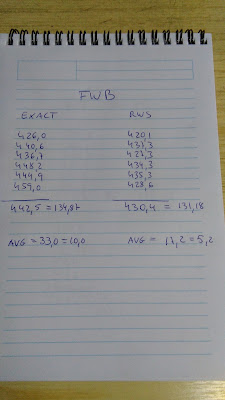 FWB
EXACT RWS
426,0 420,1
440,6 433,3
436,7 427,3
448,2 434,3
444,9 435,3
459,0 428,6
442,5 = 134,87 430,4 = 131,18
AVG = 33,0 = 10,0 AVG = 17,2 = 5,2